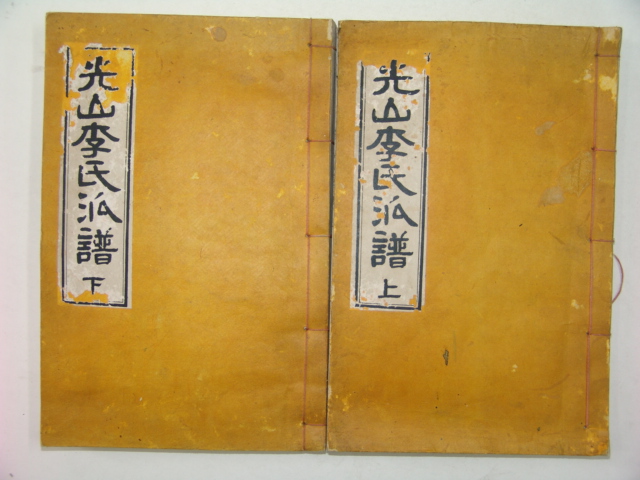 光山李氏派譜 上
光山李氏派譜 下